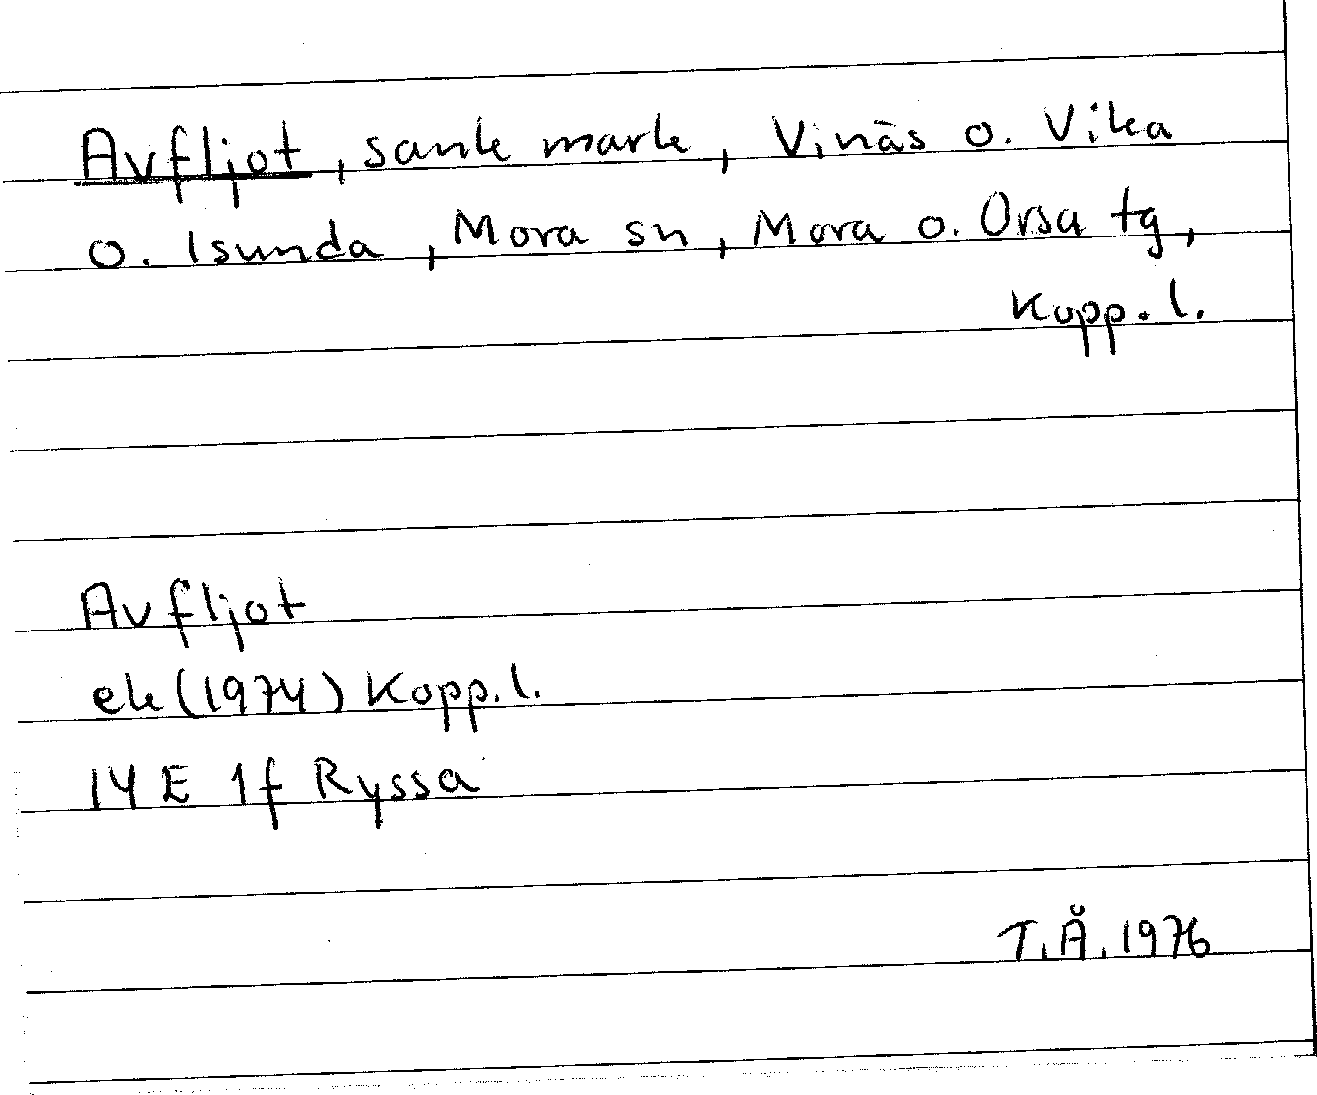 Avfljot, sank mark, Vinäs o. Vika
o. Isunda, Mora sn, Mora o. Orsa tg,
Kopp. l.
Avfljot
ek (1974) Kopp. l.
14 E 1f Ryssa
T.Å. 1976